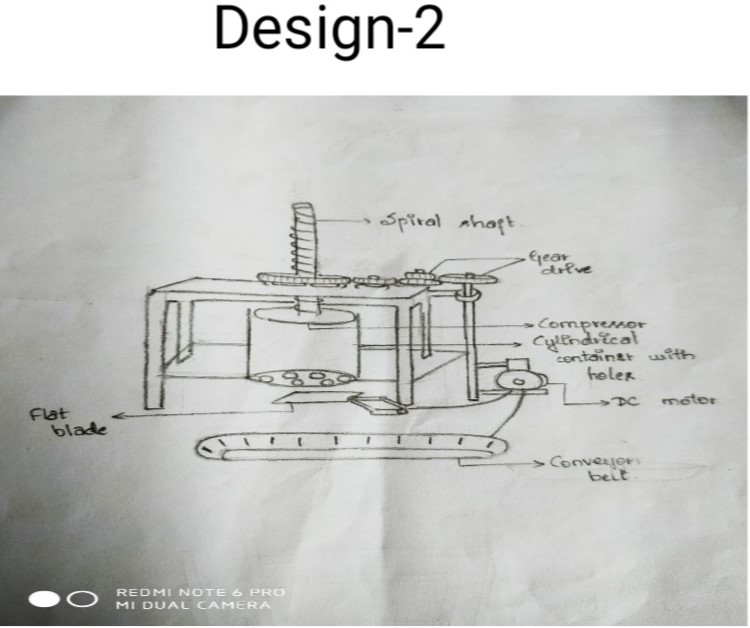 Design-2
Spiral shaft
Gear
drive
Compressor
Cylindrical
container with
holes
DC motor
Flat
blade
Conveyor
belt
REDMI NOTE 6 PRO
MI DUAL CAMERA